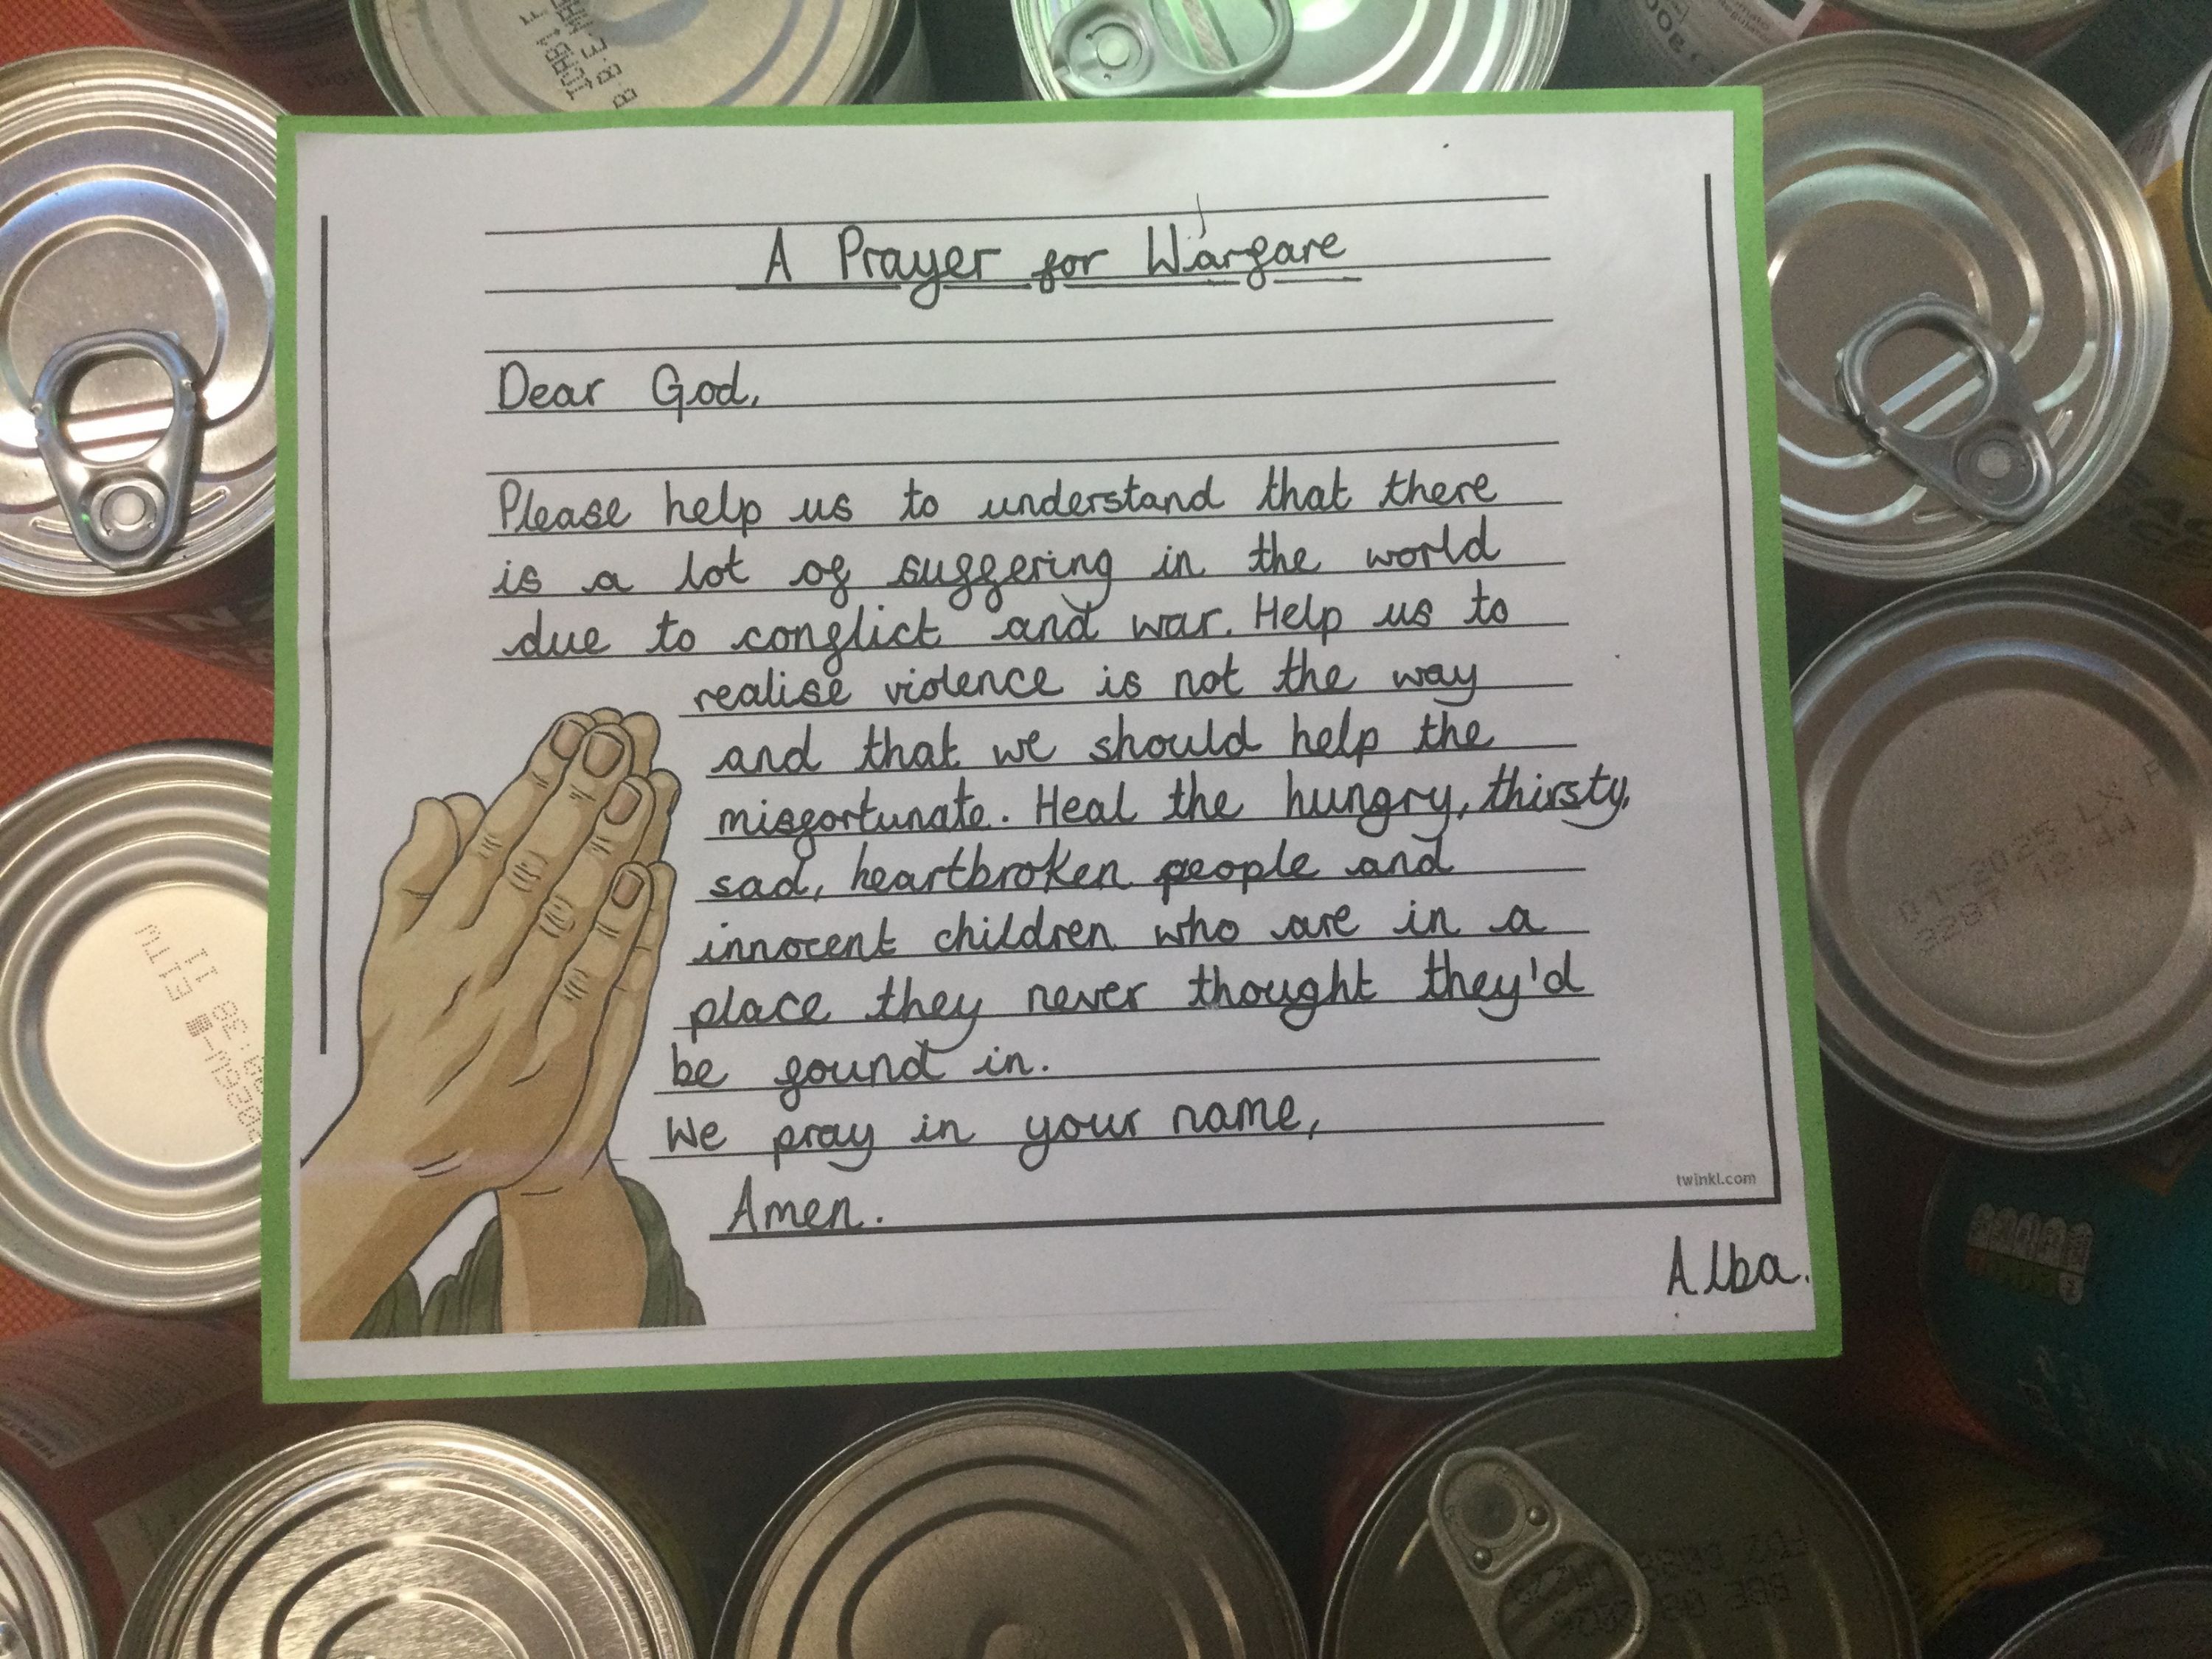 A Prayer for Warfare
Dear God,
Please help us to understand that there
is a lot of suffering in the world
due to conflict and war. Help us to
realise violence is not the way
and that we should help the
misfortunate. Heal the hungry, thirsty,
sad, heartbroken people and
innocent children who are in a
place they never thought they'd
be found in.
We pray in your name,
Amen.
twinkl.com
Alba.
01-2025 LX F
3287 12:44